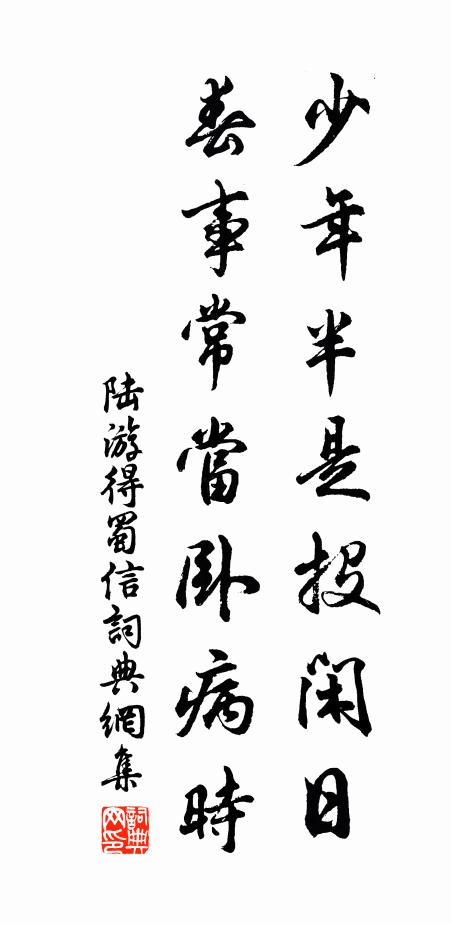 少年半是投閑日
春事常當臥病時
陸游得蜀信詞典網集
詞典网印